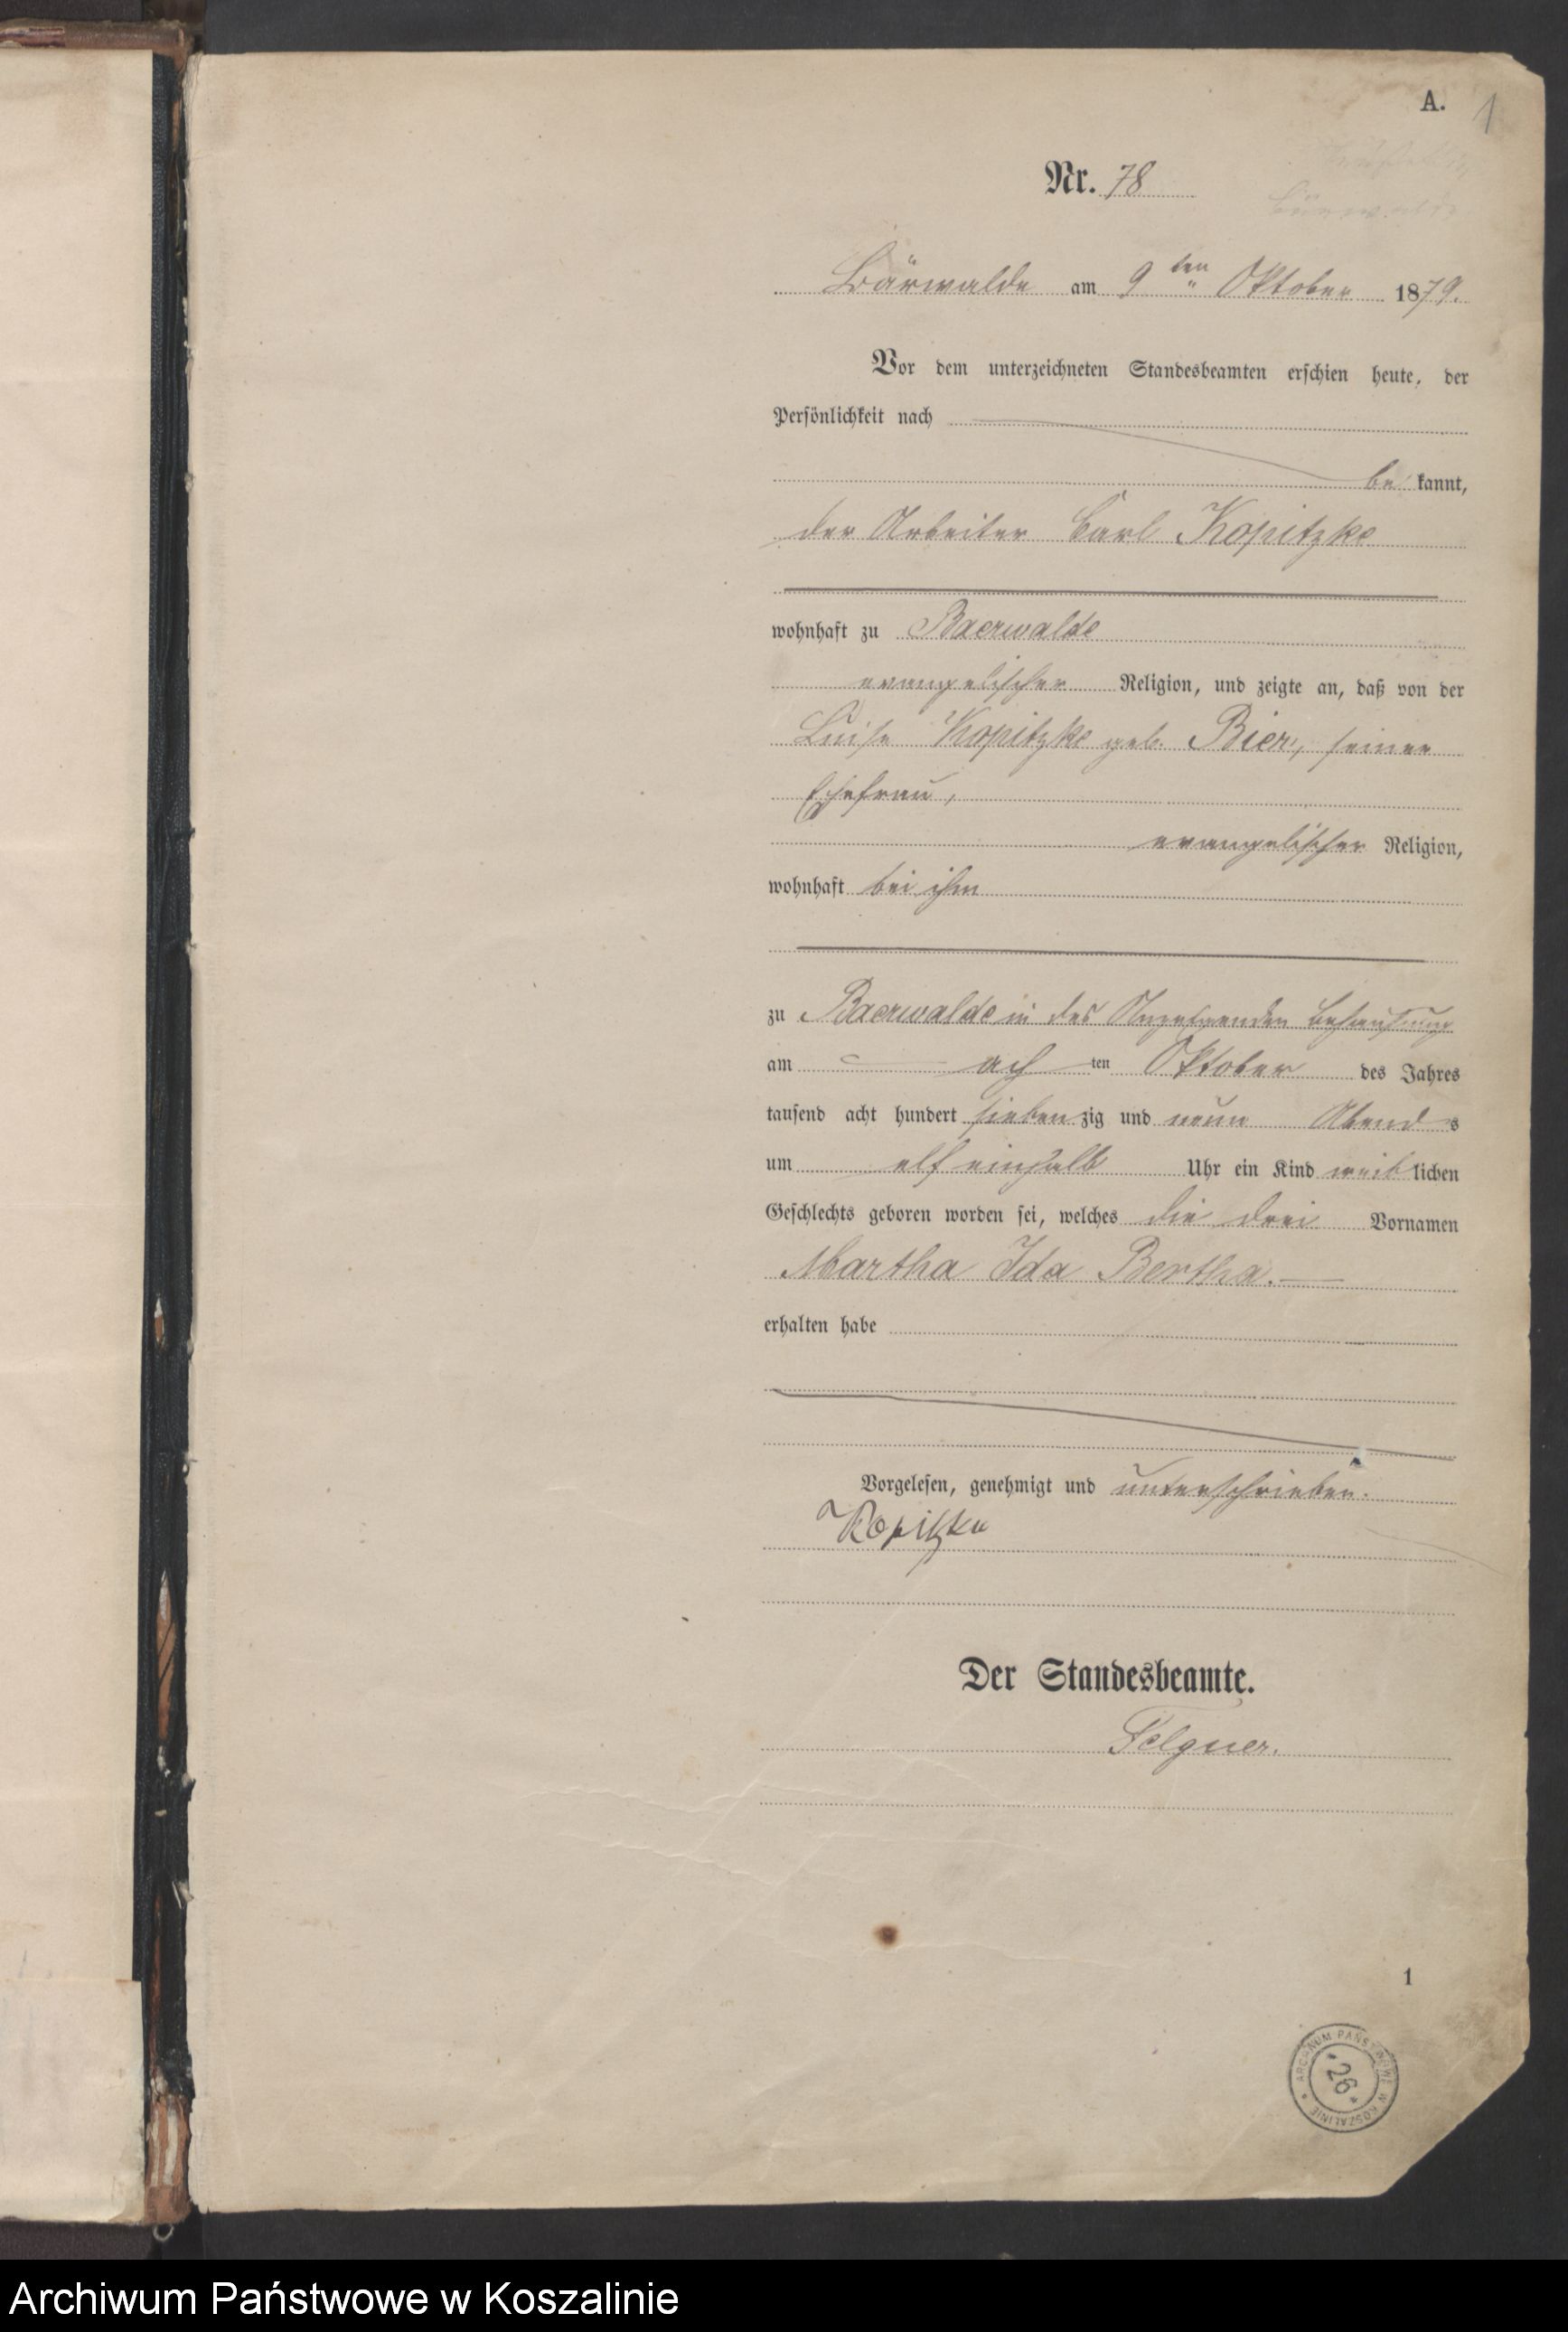 A. 1
Nr. 78
Bärwalde am 9ten Oktober 1879.
Vor dem unterzeichneten Standesbeamten erschien heute, der
Persönlichkeit nach
be kannt,
der Arbeiter Carl Kopitzke
wohnhaft zu Baerwalde
evangelischer Religion, und zeigte an, daß von der
Luise Kopitzke geb. Bier, seiner
Ehefrau,
evangelischer Religion,
wohnhaft bei ihm
zu Baerwalde in des Anzeigenden Behausung
am ach ten Oktober des Jahres
tausend acht hundert sieben zig und neun Abend s
um elf einhalb Uhr ein Kind weib lichen
Geschlechts geboren worden sei, welches die drei Vornamen
Martha Ida Bertha.
erhalten habe
Vorgelesen, genehmigt und unterschrieben.
Kopitzke
Der Standesbeamte.
Felgner.
1
ARCHIWUM PAŃSTWOWE W KOSZALINIE
26
Archiwum Państwowe w Koszalinie